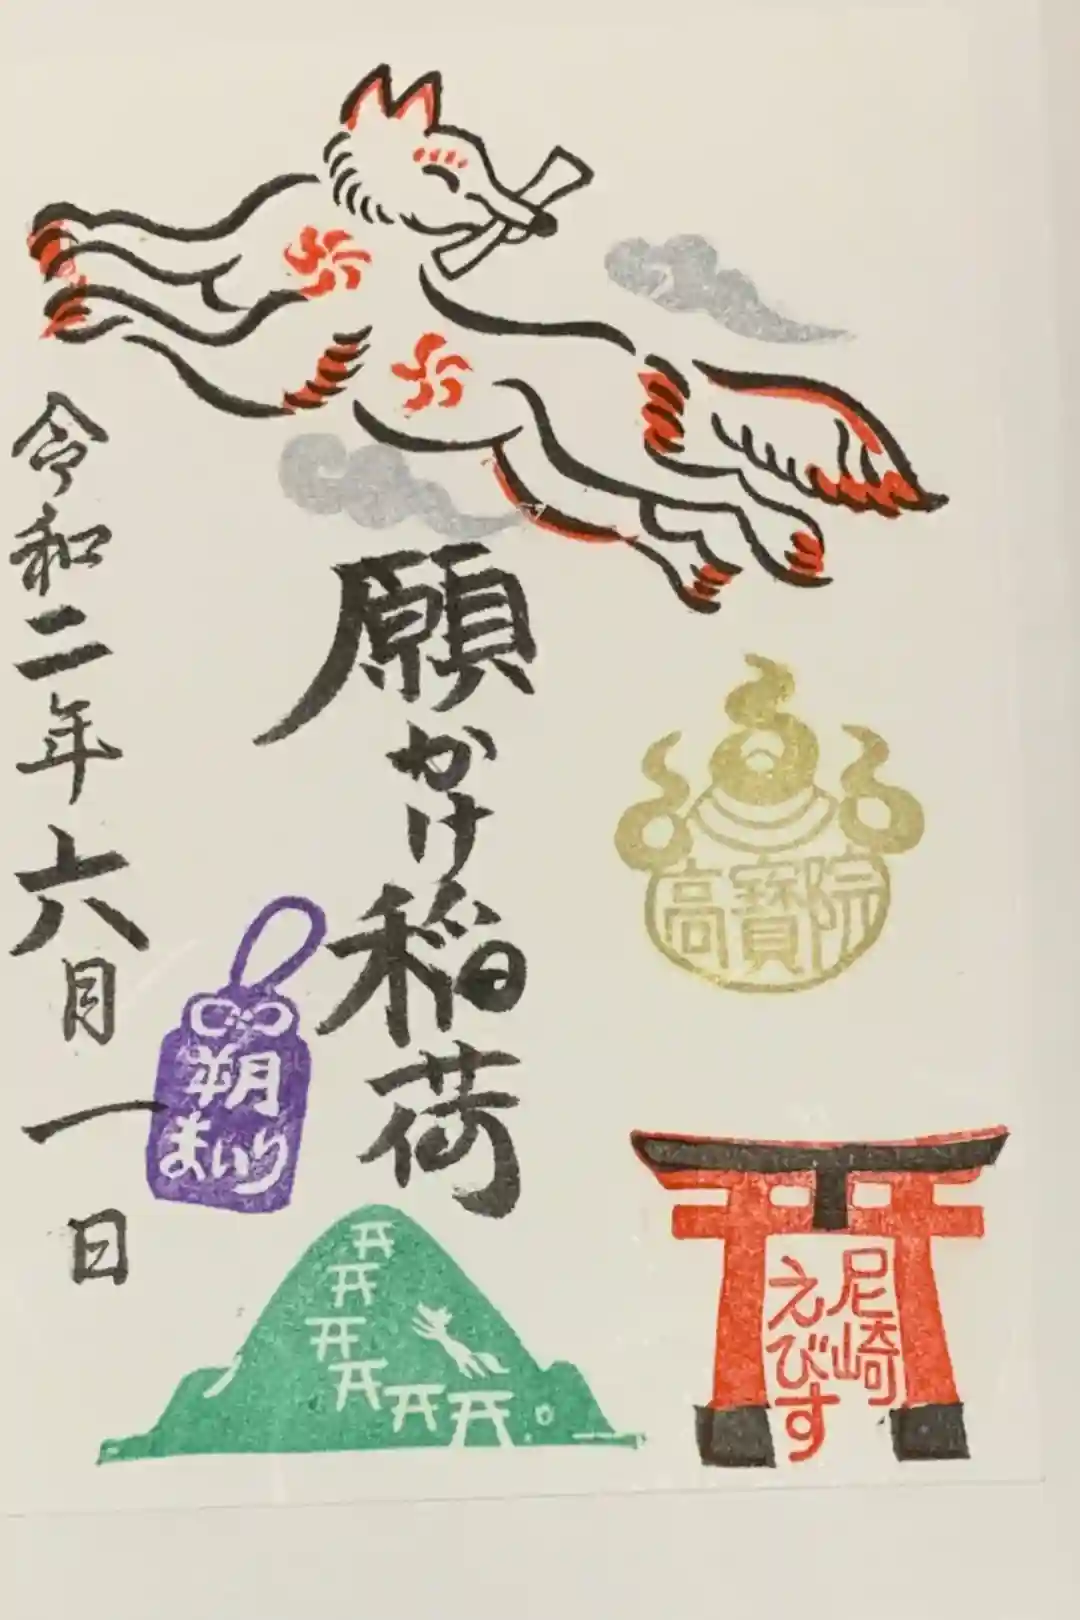 高寶院
尼崎
えびす
願かけ稲荷
朔
まいり
令和二年六月一日